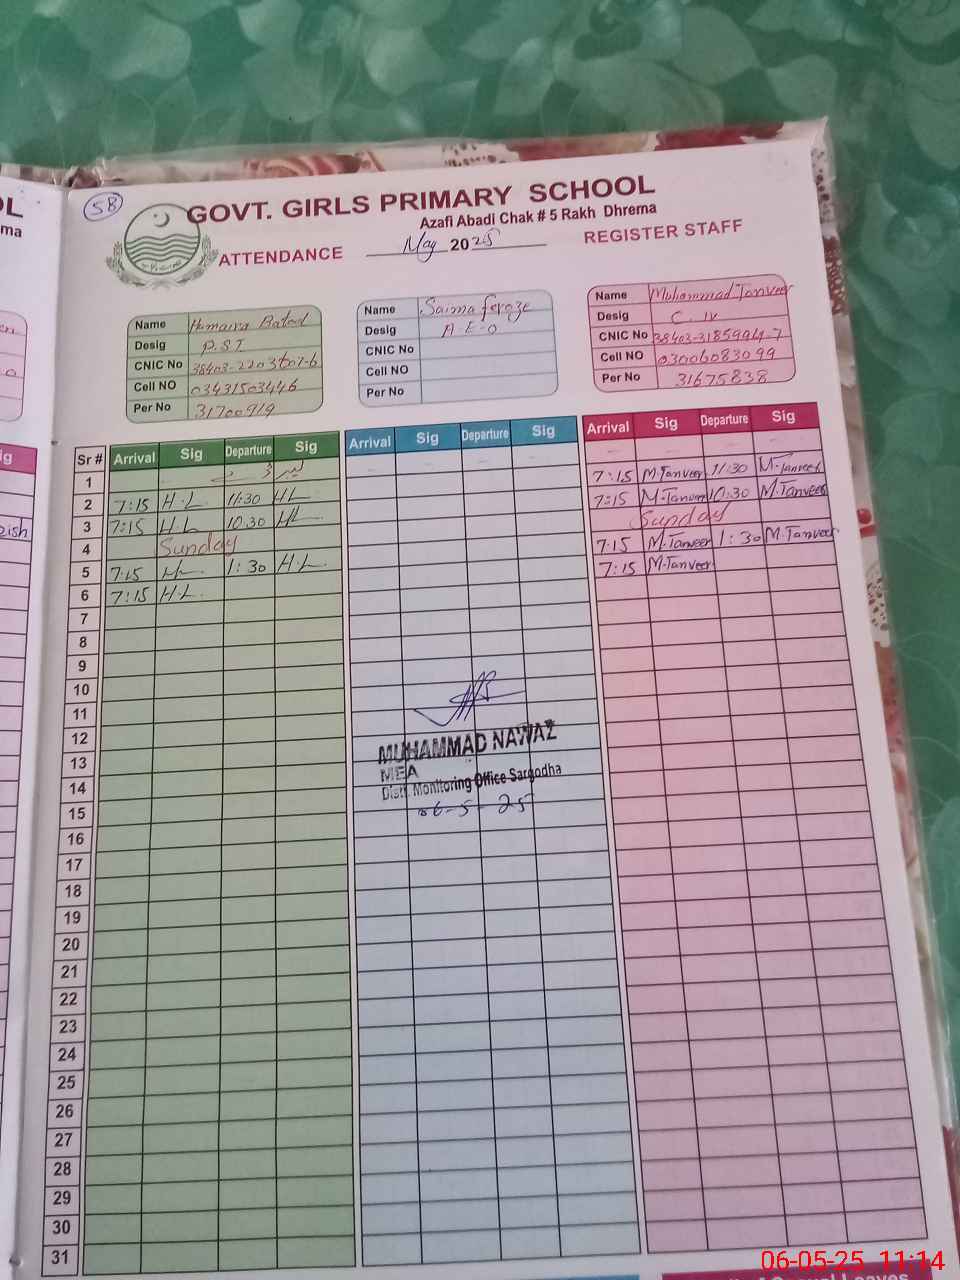 OL
ma
58
GOVT. GIRLS PRIMARY SCHOOL
Azafi Abadi Chak # 5 Rakh Dhrema
ATTENDANCE May 2025 REGISTER STAFF
Name Humaira Batool
Desig P.S.T
CNIC No
Cell NO 03431503446
Per No 31700919
Name Saima feroze
Desig A-E-O
CNIC No
Cell NO
Per No
Name Muhammad Tanveer
Desig C. IV
CNIC No 38403-3185994-7
Cell NO 03006083099
Per No 31675838
ig
Sr # Arrival Sig Departure Sig Arrival Sig Departure Sig Arrival Sig Departure Sig
1
2 7:15 H.L 11:30 HL 7:15 M.Tanveer 11:30 M.Tanveer
3 7:15 H.L 10.30 HL 7:15 M.Tanveer 10:30 M.Tanveer
4 Sunday Sunday
5 7:15 HL 1:30 H.L 7:15 M.Tanveer 1:30 M.Tanveer
6 7:15 H.L 7:15 M.Tanveer
7
8
9
10
11
12
13
14
15
16
17
18
19
20
21
22
23
24
25
26
27
28
29
30
31
MUHAMMAD NAWAZ
MEA
Distt. Monitoring Office Sargodha
06-5-25
06-05-25 11:14